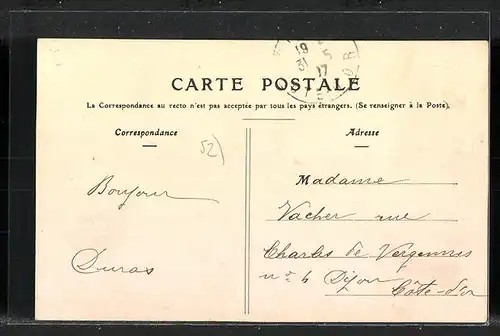 19 5
31 17
CARTE POSTALE
La Correspondance au recto n'est pas acceptée par tous les pays étrangers. (Se renseigner à la Poste).
Correspondance
Adresse
52)
Bonjour
Duras
Madame
Vacher rue
Charles de Vergennes
n° 4 Dijon
Côte-d'or